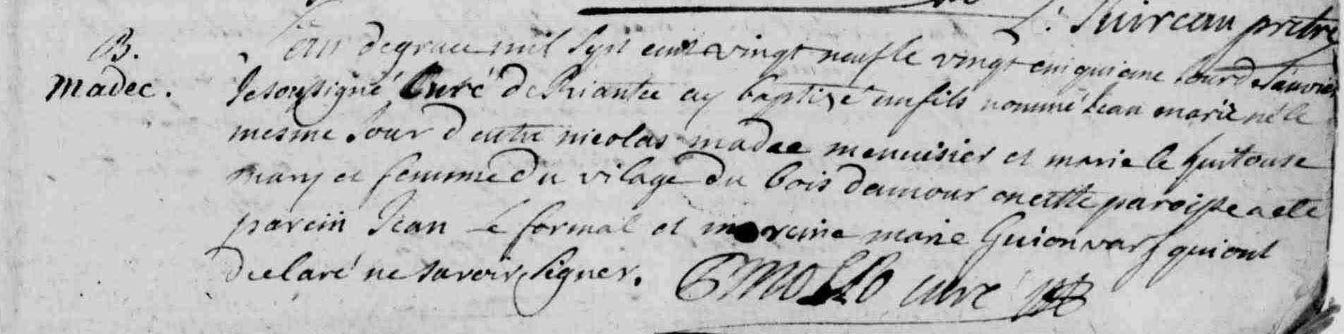 prêtre
B.
madec.
L'an de grace mil sept cent vingt neuf le vingt cinquième Jour de Janvier
Je soussigné Curé de Riantec ay baptizé un fils nommé Jean marie né le
mesme Jour d'entre nicolas madec menuisier et marie le
mary et femme du vilage du bois d'amour en cette paroisse a eté
parein Jean le formal et mareine marie Guionvarh qui ont
declaré ne savoir signer. curé